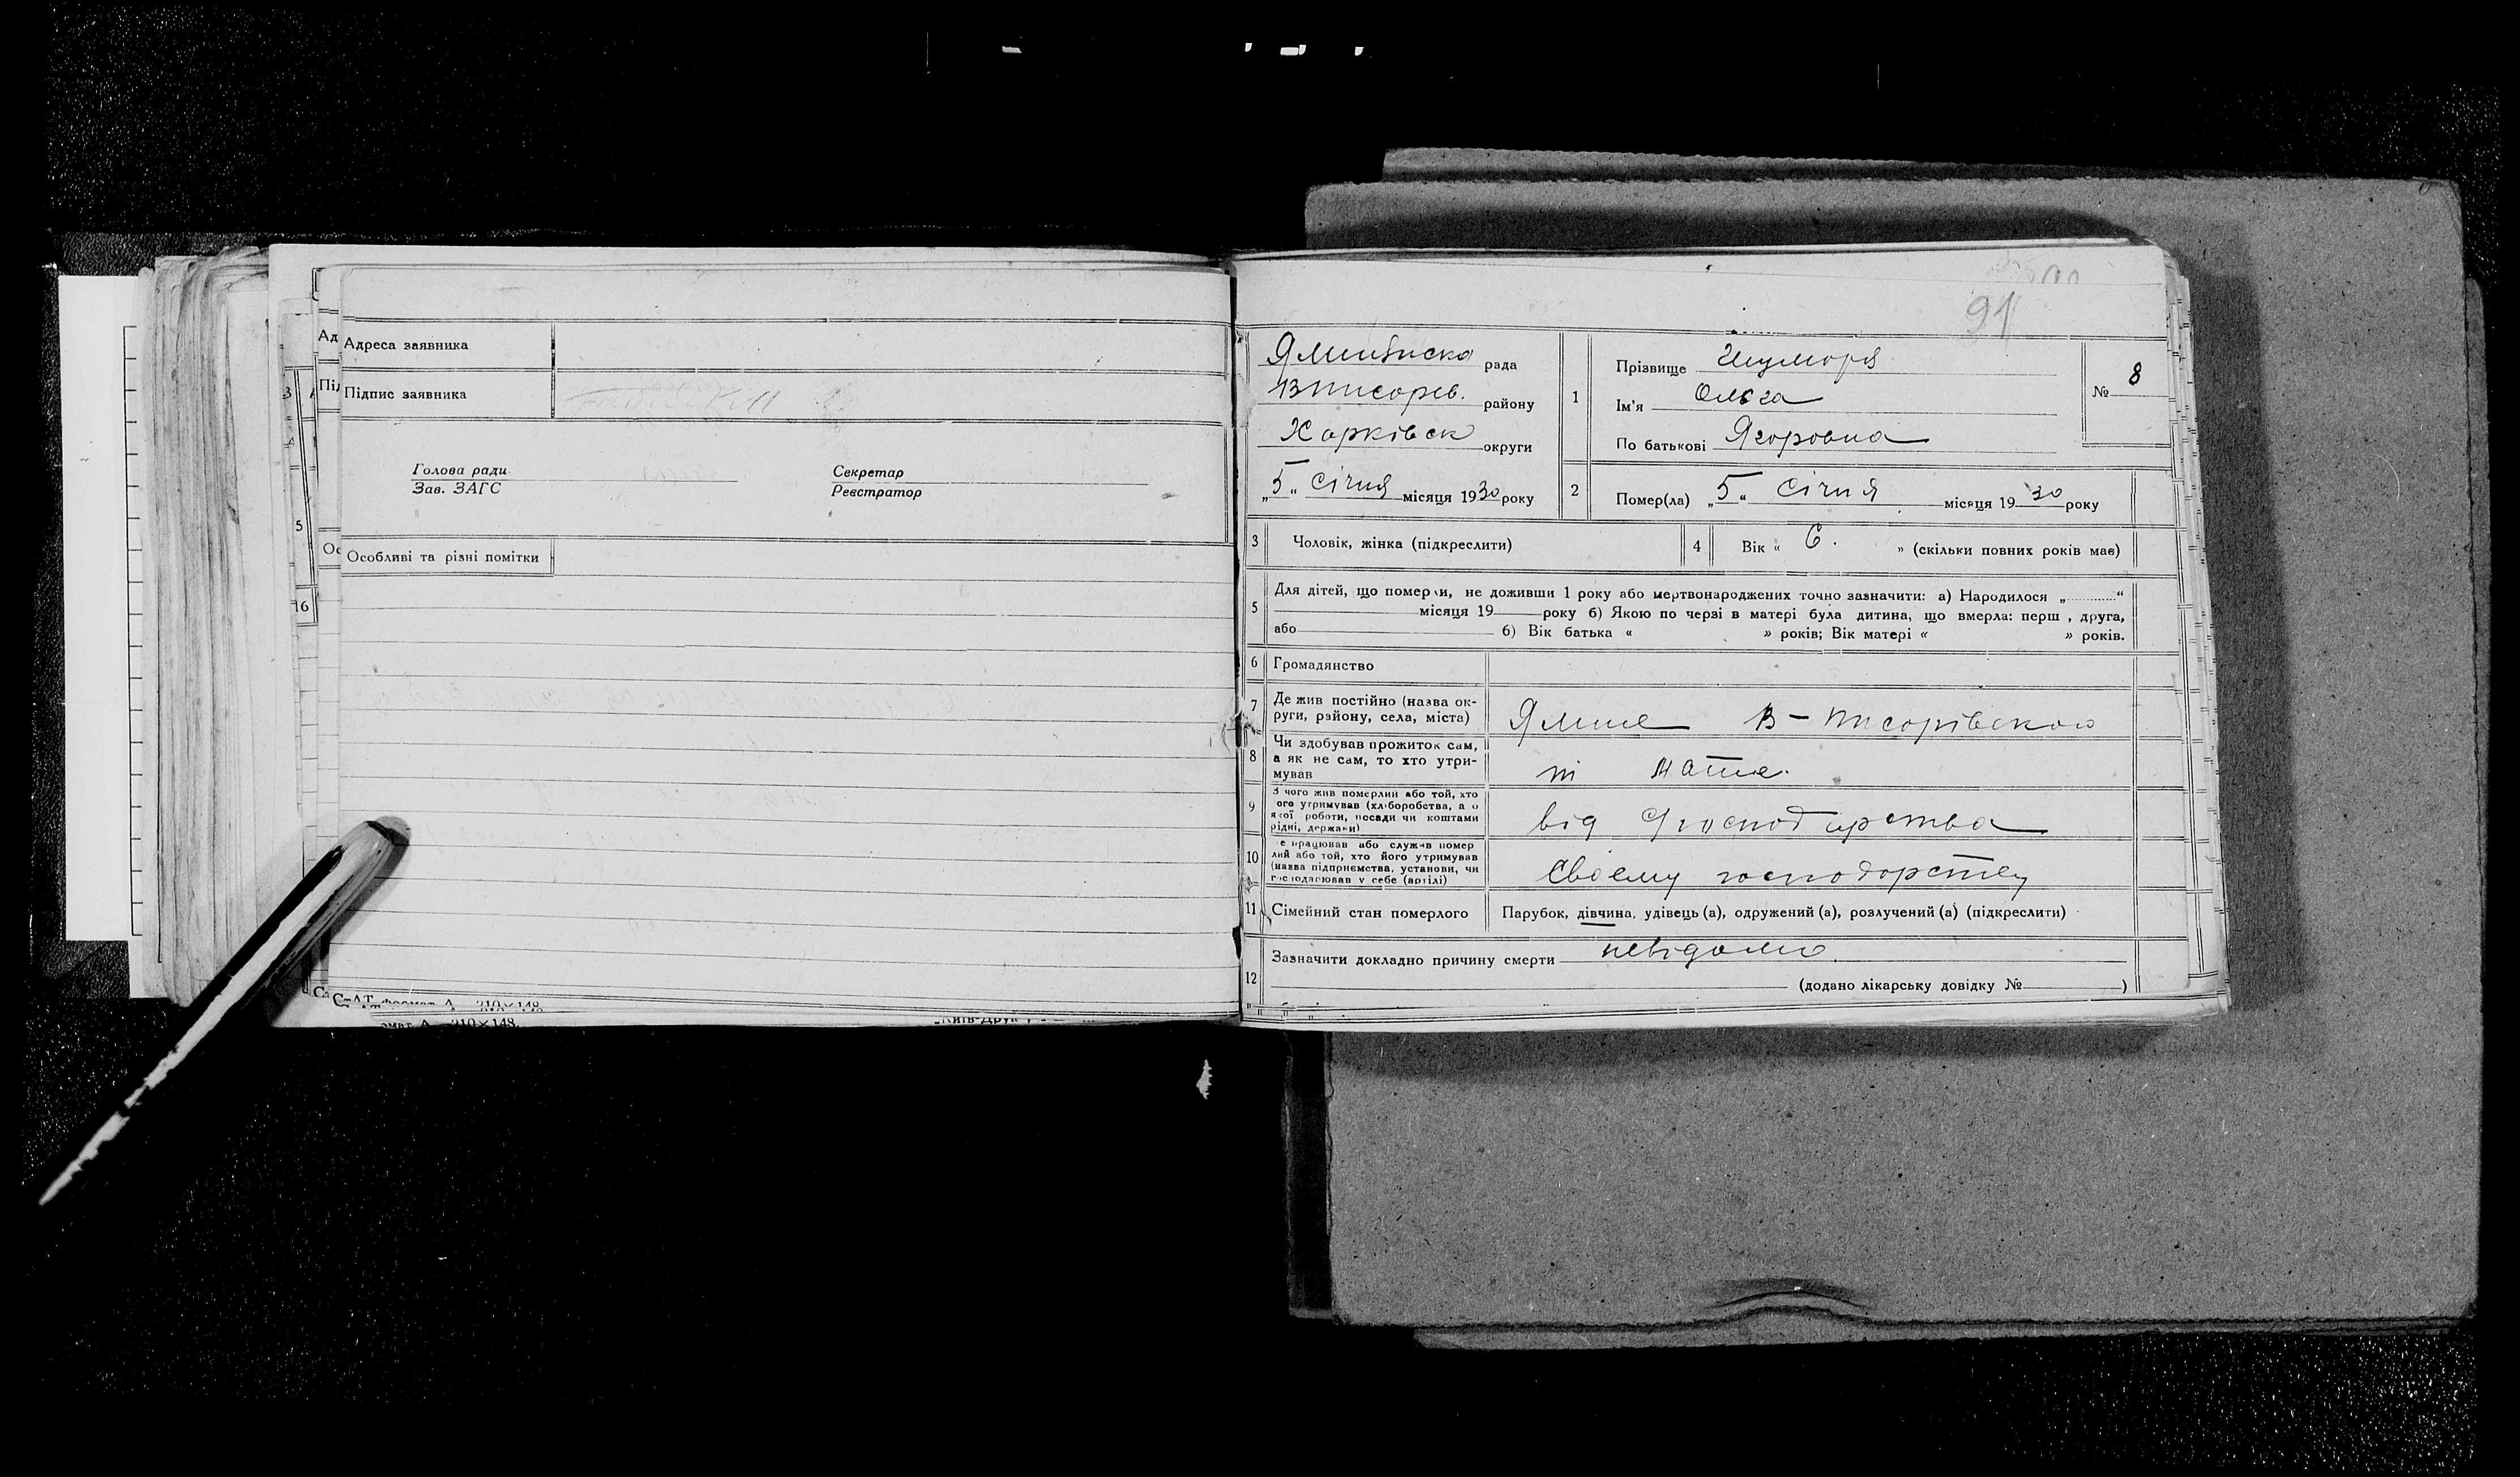 Адреса заявника
Підпис заявника
Голова ради
Зав. ЗАГС
Секретар
Реєстратор
Особливі та різні помітки
91
рада
району
Харківськ округи
„5“ січня місяця 1930 року
1
Прізвище
Ім'я Ольга
По батькові Ягоровна
№ 8
2
Помер(ла) „5“ січня місяця 19 30 року
3 Чоловік, жінка (підкреслити)
4 Вік « 6. » (скільки повних років має)
5 Для дітей, що померли, не доживши 1 року або мертвонароджених точно зазначити: а) Народилося „ “
місяця 19 року б) Якою по черзі в матері була дитина, що вмерла: перш , друга,
або 6) Вік батька « » років; Вік матері « » років.
6 Громадянство
7 Де жив постійно (назва ок-
руги, району, села, міста)
Ямне В-Писорівского
8 Чи здобував прожиток сам,
а як не сам, то хто утри-
мував
ні мати.
9 З чого жив померлий або той, хто
ого утримував (хліборобства, а о
якої роботи, посади чи коштами
рідні, держави)
від господарства
10 е працював або служив помер
лий або той, хто його утримував
(назва підприємства, установи, чи
господарював у себе (артілі)
своему господорству
11 Сімейний стан померлого
Парубок, дівчина, удівець (а), одружений (а), розлучений (а) (підкреслити)
12 Зазначити докладно причину смерти невідомо.
(додано лікарську довідку № )